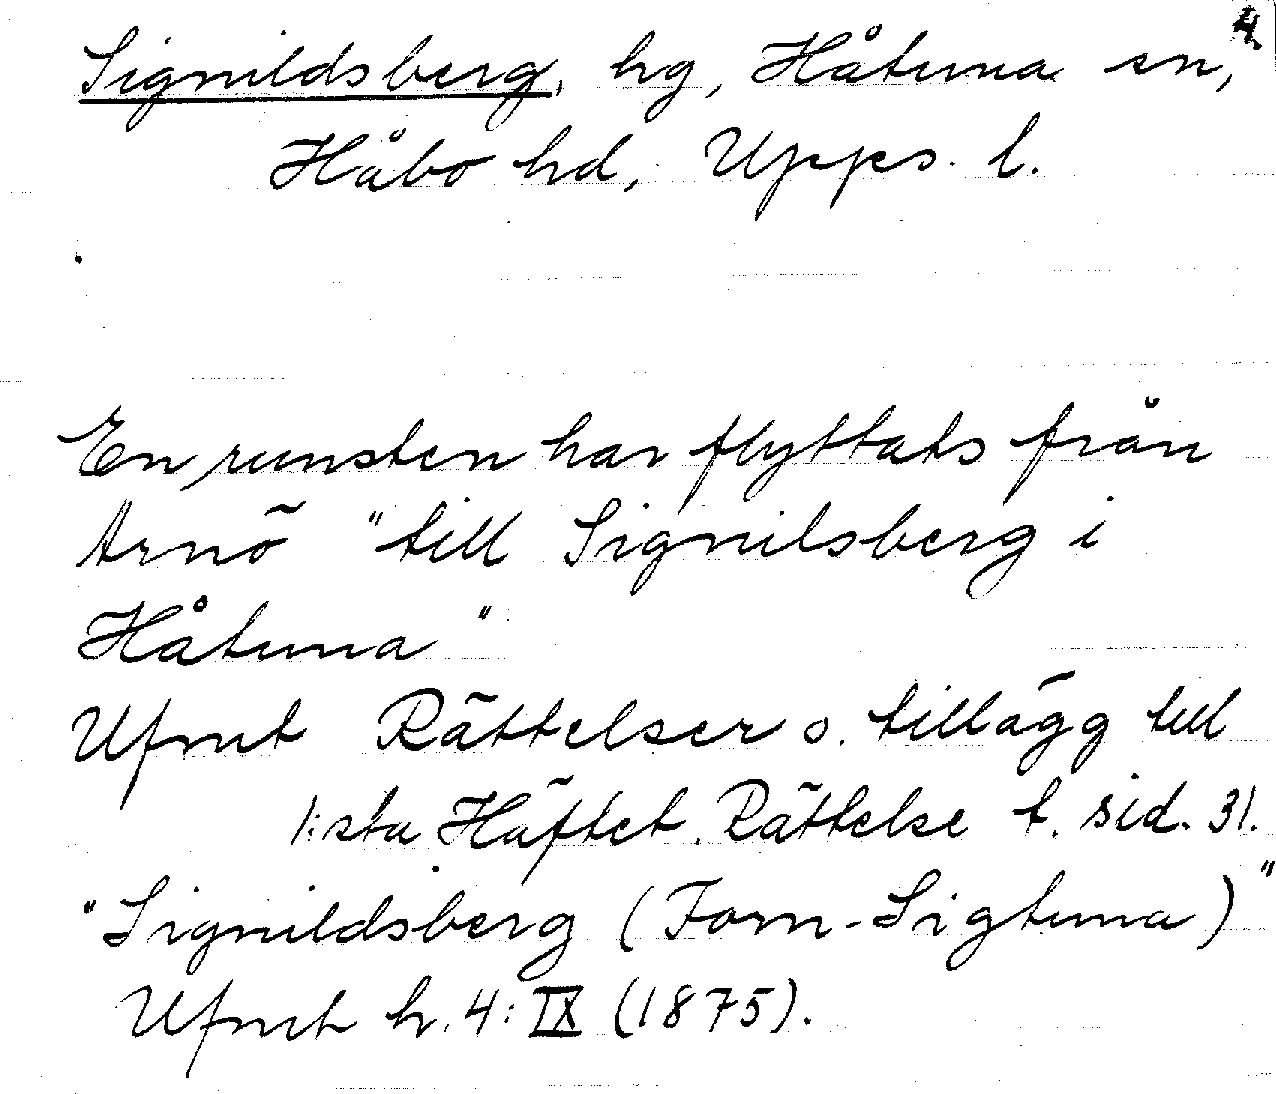 4
Signildsberg, hg, Håtuna sn,
Håbo hd, Upps. l.
En runsten har flyttats från
Arnö "till Signilsberg i
Håtuna"
Ufmt Rättelser o. tillägg till
1:sta Häftet. Rättelse t. sid. 31.
"Signildsberg (Forn-Sigtuna)"
Ufmt h. 4: IX (1875).